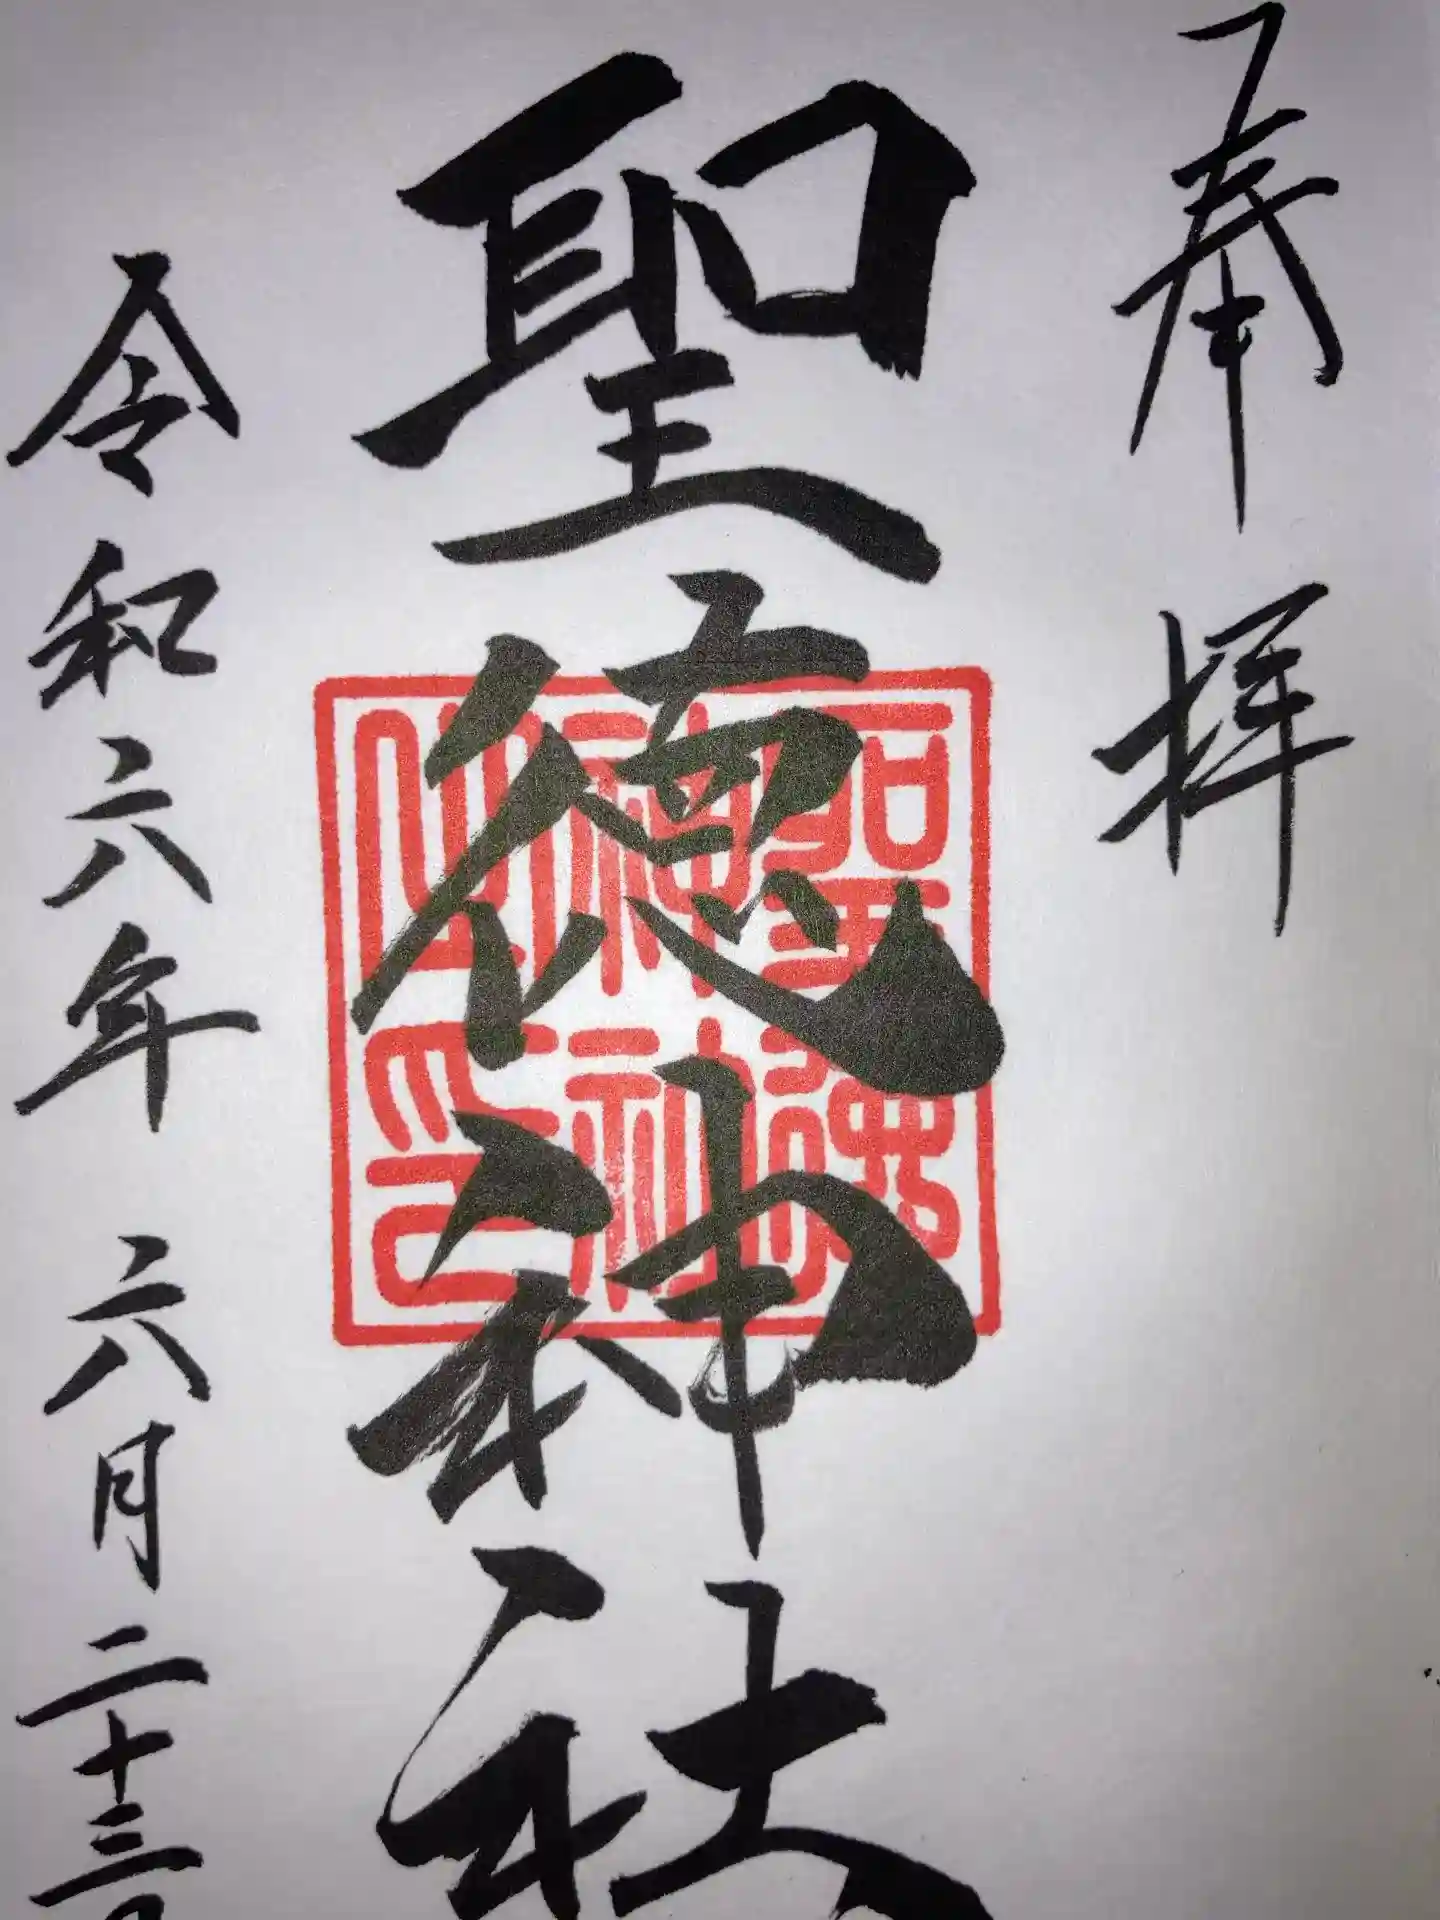 奉拝
聖徳神社
聖徳
神社
之印
令和六年 六月二十三日